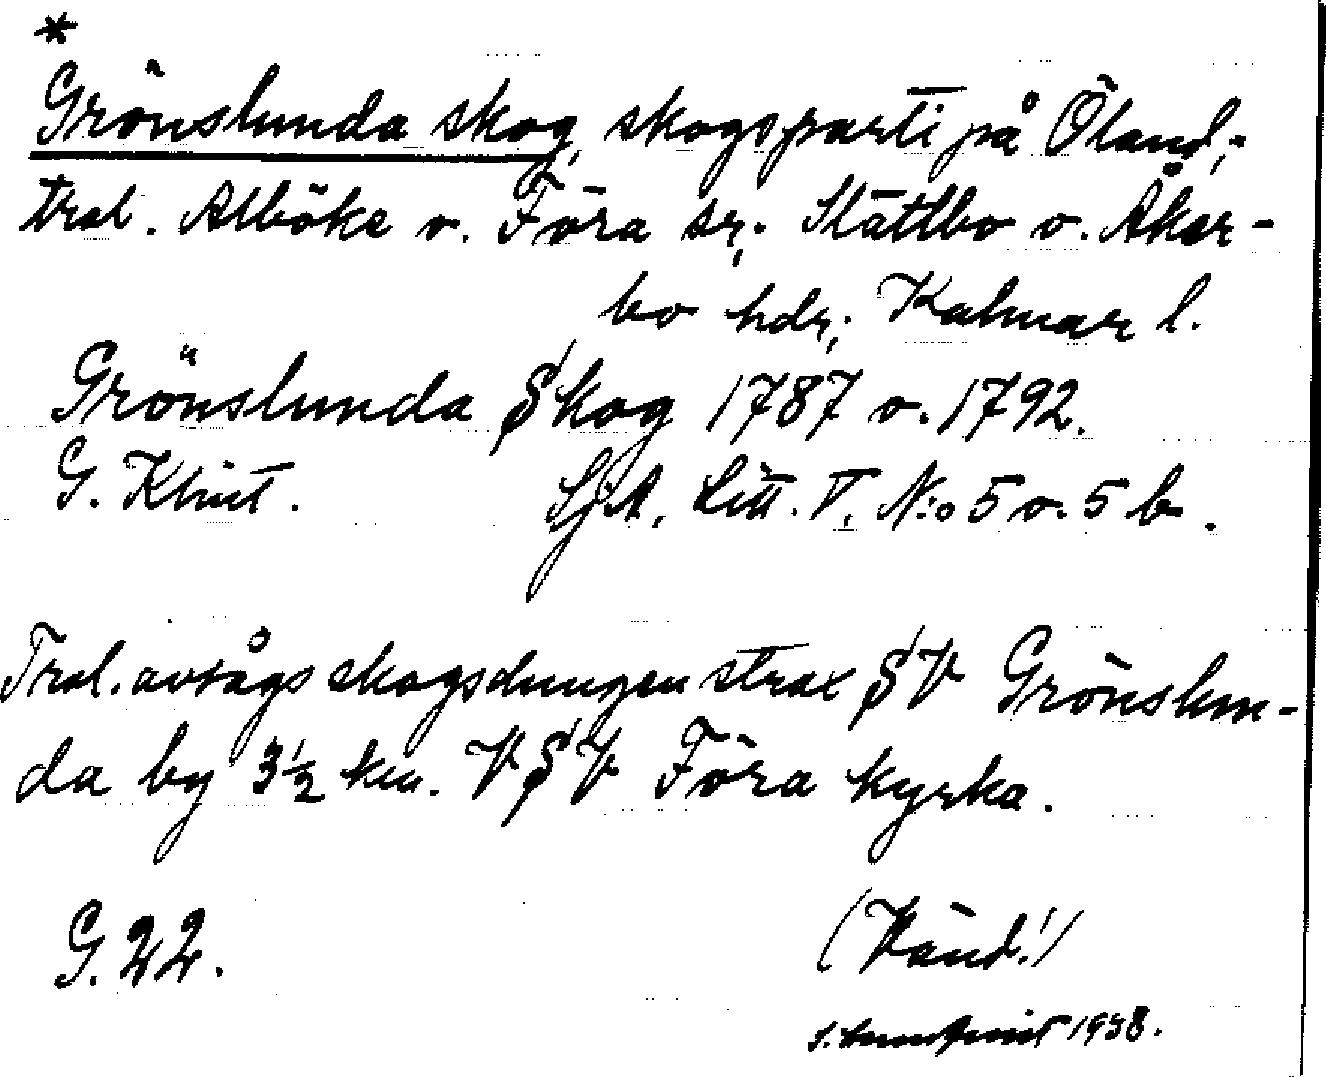 *
Grönslunda skog, skogsparti på Öland;
trol. Alböke o. Föra sr; Slättbo o. Åker-
bo hdr; Kalmar l.
Grönslunda Skog 1787 o. 1792.
G. Klint. SjA, Litt. V, N:o 5 o. 5 b.
Trol. avsågs skogsdungen strax SV Grönslun-
da by 3½ km. VSV Föra kyrka.
G. 22. (Vänd!)
1938.